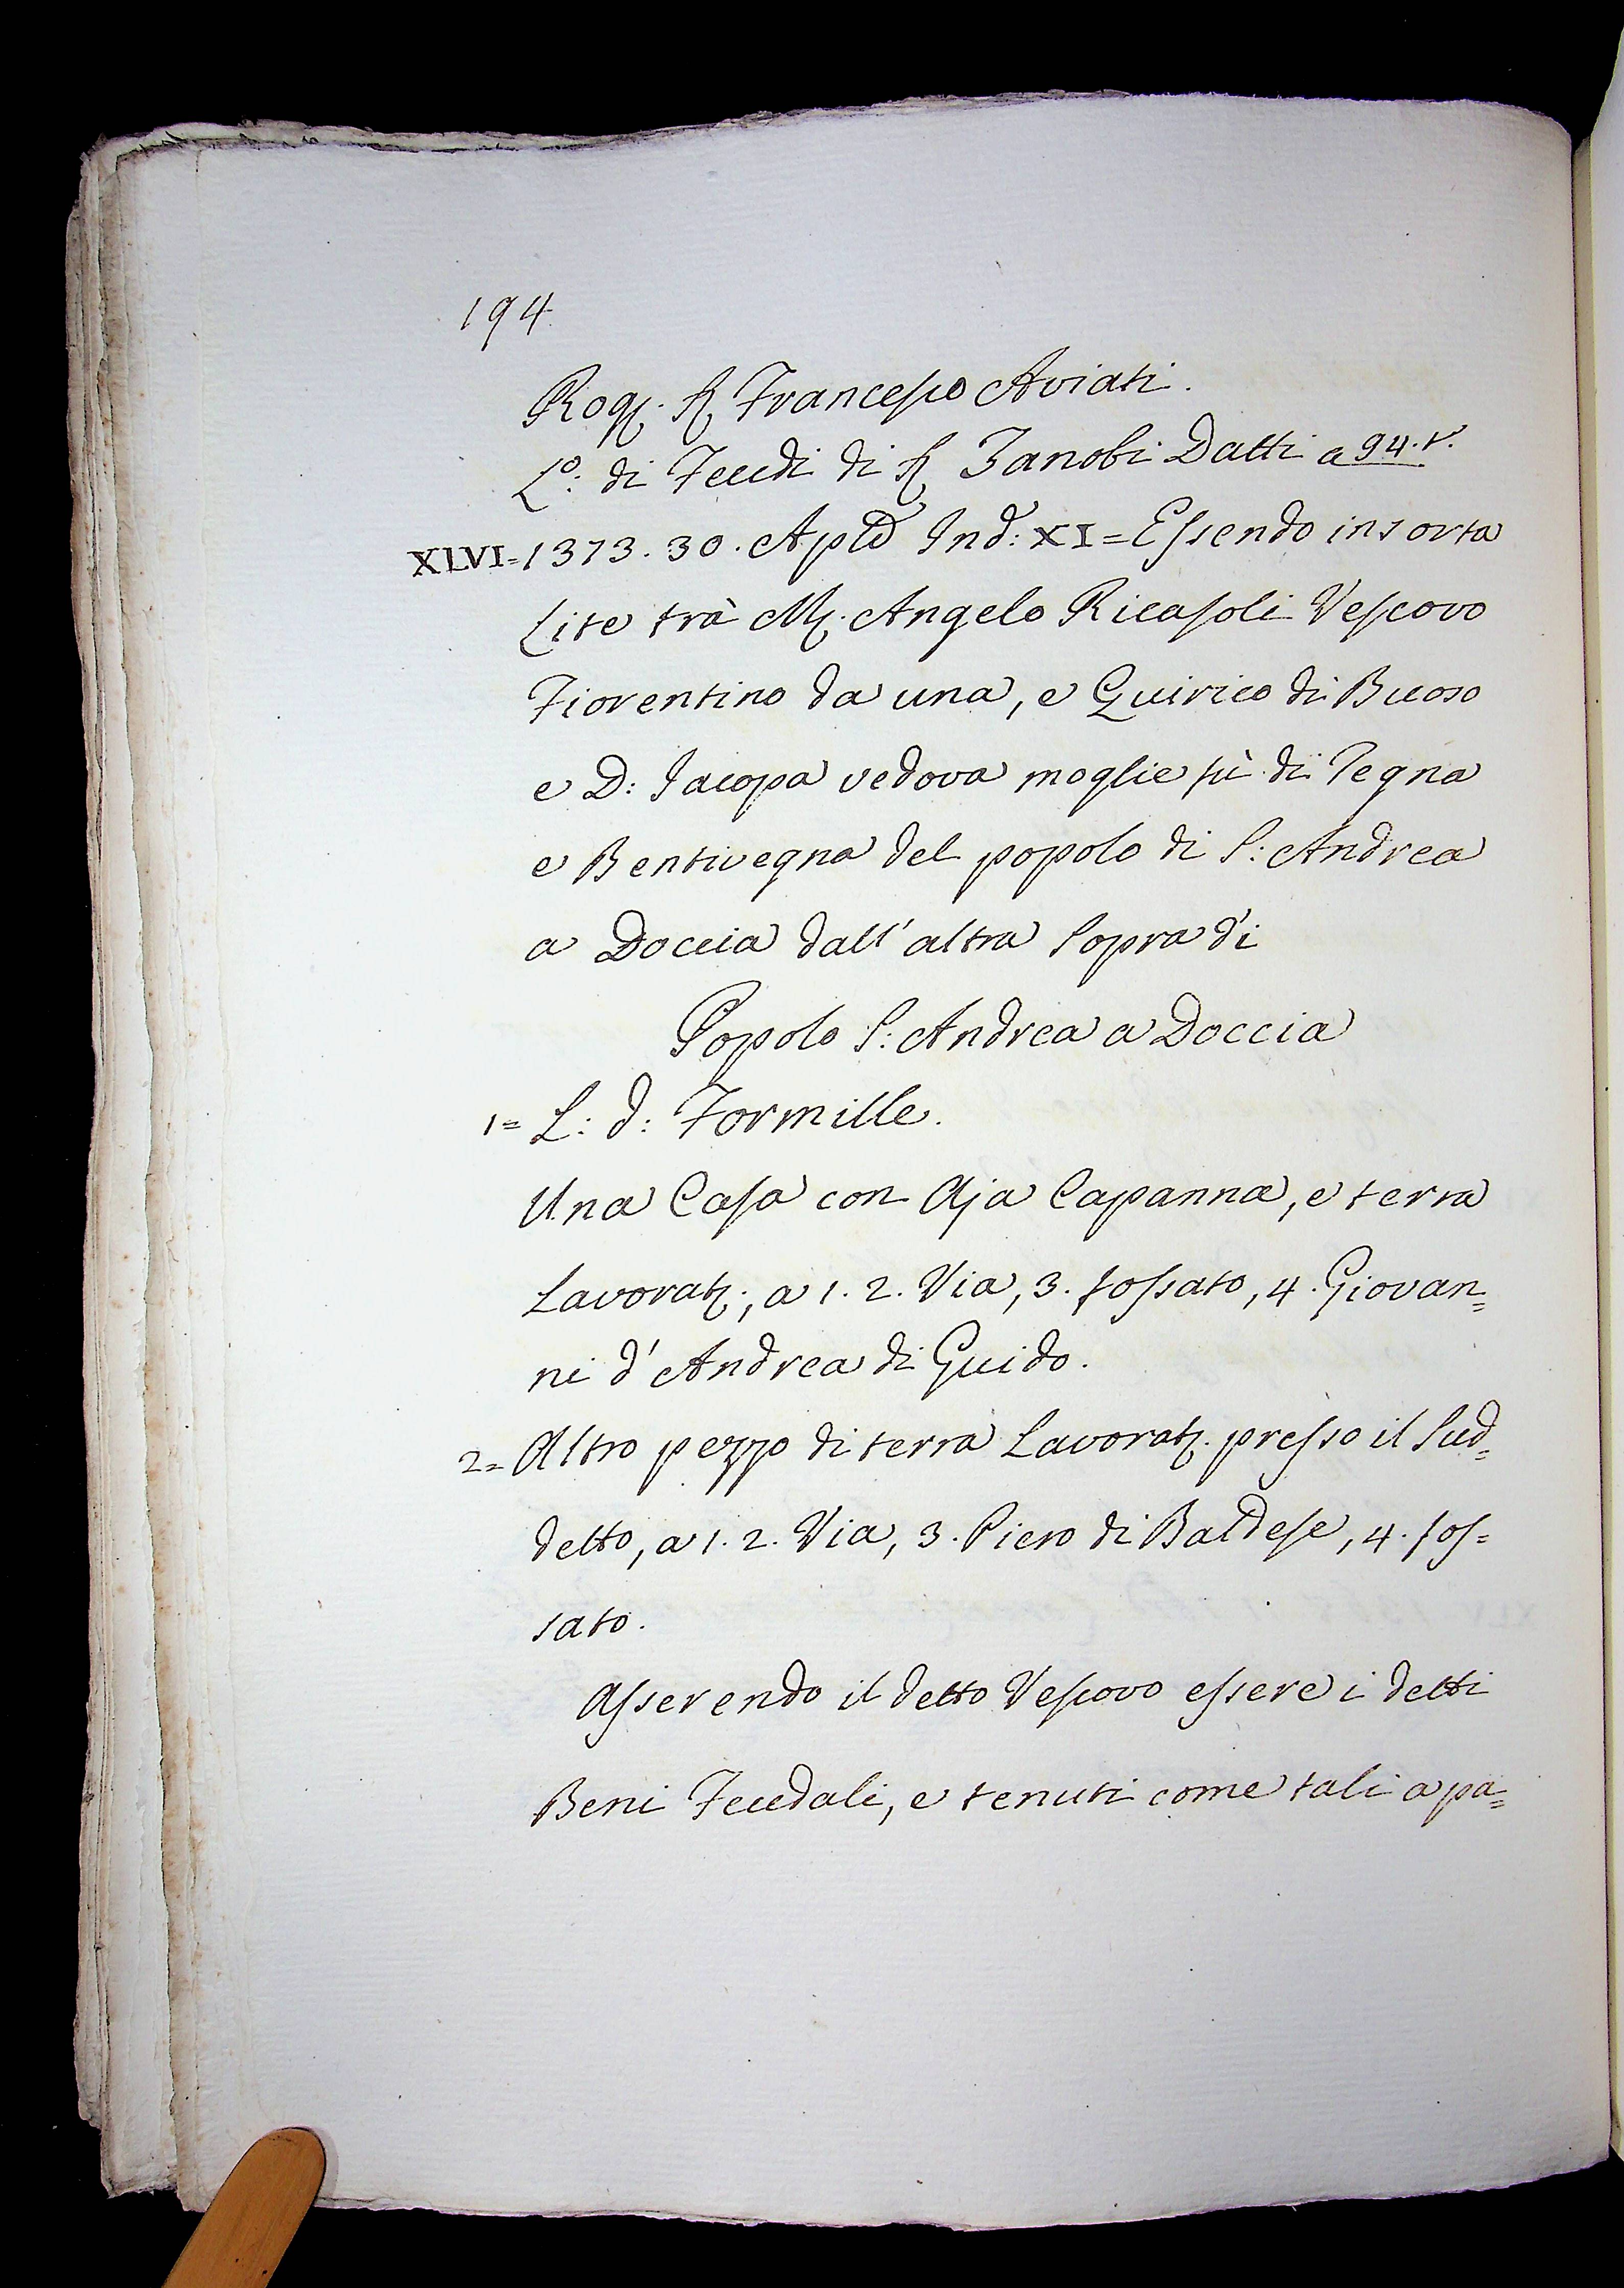 194
Rog. S. Francesco Aviati.
L.º: di Feudi di S. Zanobi Datti a 94.t.
XLVI=1373. 30. Aple Ind: XI=Essendo insorta
Lite trà M. Angelo Ricasoli Vescovo
Fiorentino da una, e Quirico di Buoso
e D: Jacopa vedova moglie fù di Tegna
e Bentivegna del popolo di S: Andrea
a Doccia dall'altra sopra di
Popolo S: Andrea a Doccia
1= L: d: Formille.
Una Casa con Aja Capanna, e terra
Lavorat.; a 1. 2. Via, 3. fossato, 4. Giovan=
ni d'Andrea di Guido.
2= Altro pezzo di terra Lavorat. presso il Sud=
detto, a 1. 2. Via, 3. Piero di Baldese, 4. fos=
sato.
Asserendo il detto Vescovo essere i detti
Beni Feudali, e tenuti come tali a pa=